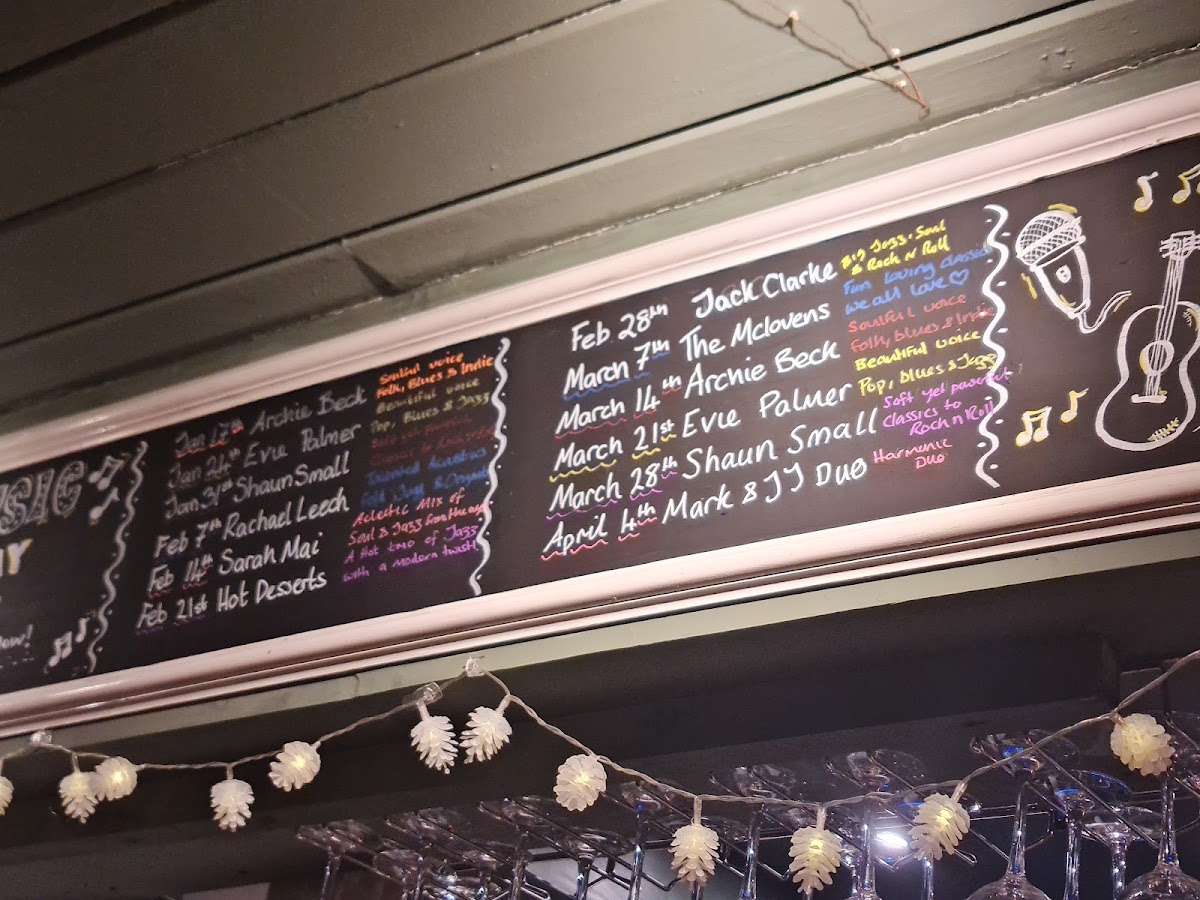 Jan 17th Archie Beck
Soulful voice
Folk, Blues & Indie
Jan 24th Evie Palmer
Beautiful voice
Pop, Blues & Jazz
Jan 31st Shaun Small
Feb 7th Rachael Leech
Feb 14th Sarah Mai
Aclectic Mix of
Soul & Jazz from the
Feb 21st Hot Desserts
A Hot two of Jazz
with a modern twist
Feb 28th Jack Clarke
Jazz, Soul
& Rock N' Roll
March 7th The Mclovens
Fun loving classics
we all love
March 14th Archie Beck
Soulful voice
Folk, blues & Indie
March 21st Evie Palmer
Beautiful voice
Pop, blues & Jazz
March 28th Shaun Small
Soft yet powerful
classics to
Rock n Roll
April 4th Mark & JJ Duo
Harmonic
Duo